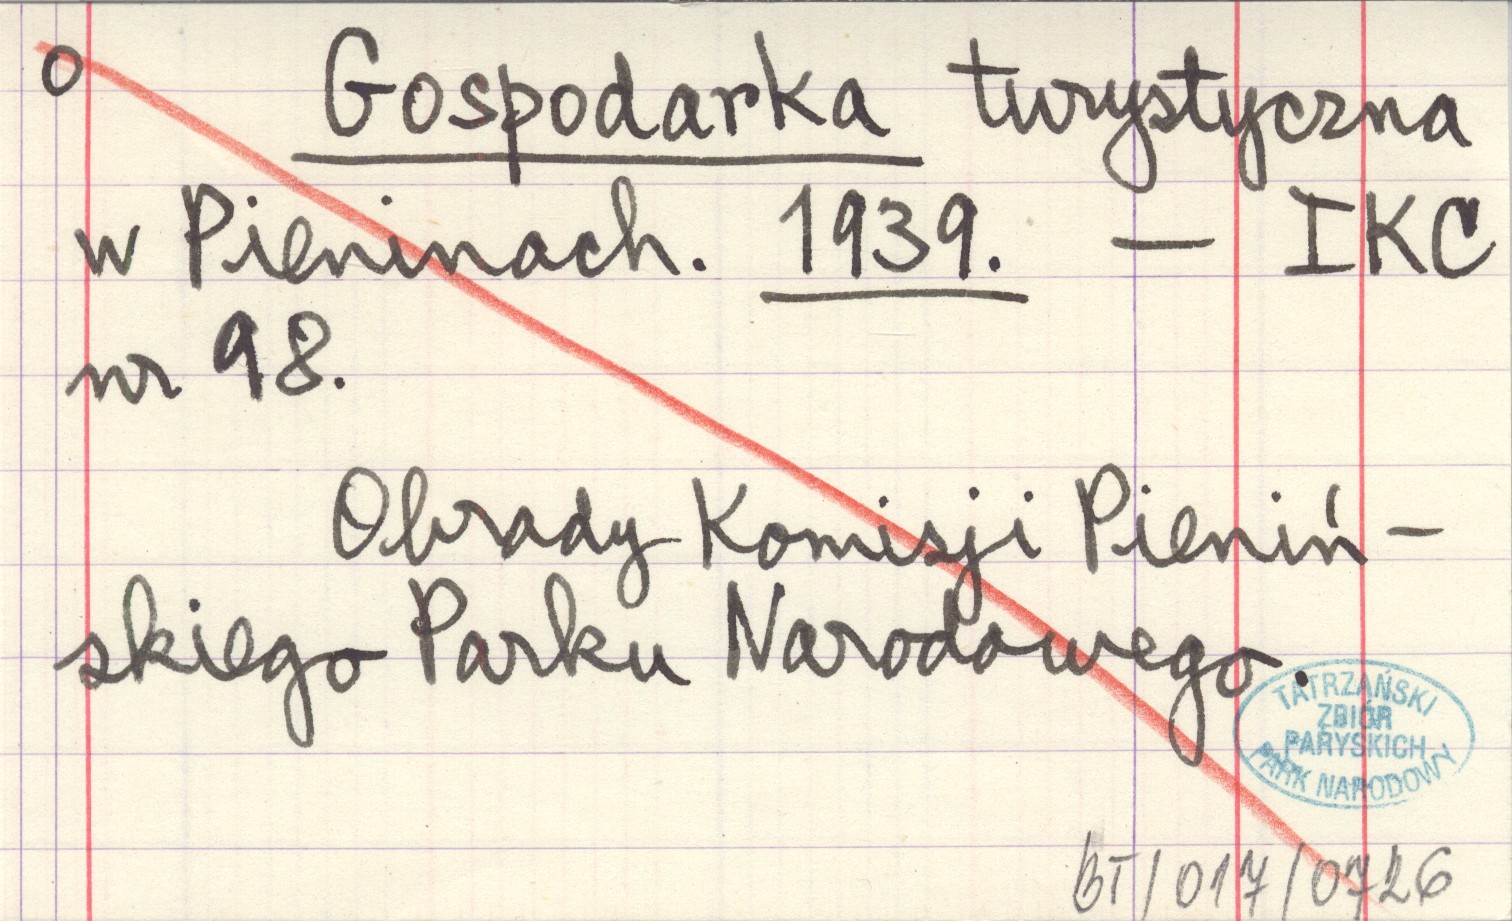 o Gospodarka turystyczna
w Pieninach. 1939. — IKC
nr 98.
Obrady Komisji Pieniń-
skiego Parku Narodowego.
TATRZAŃSKI
ZBIÓR
PARYSKICH
PARK NARODOWY
BT/017/0726